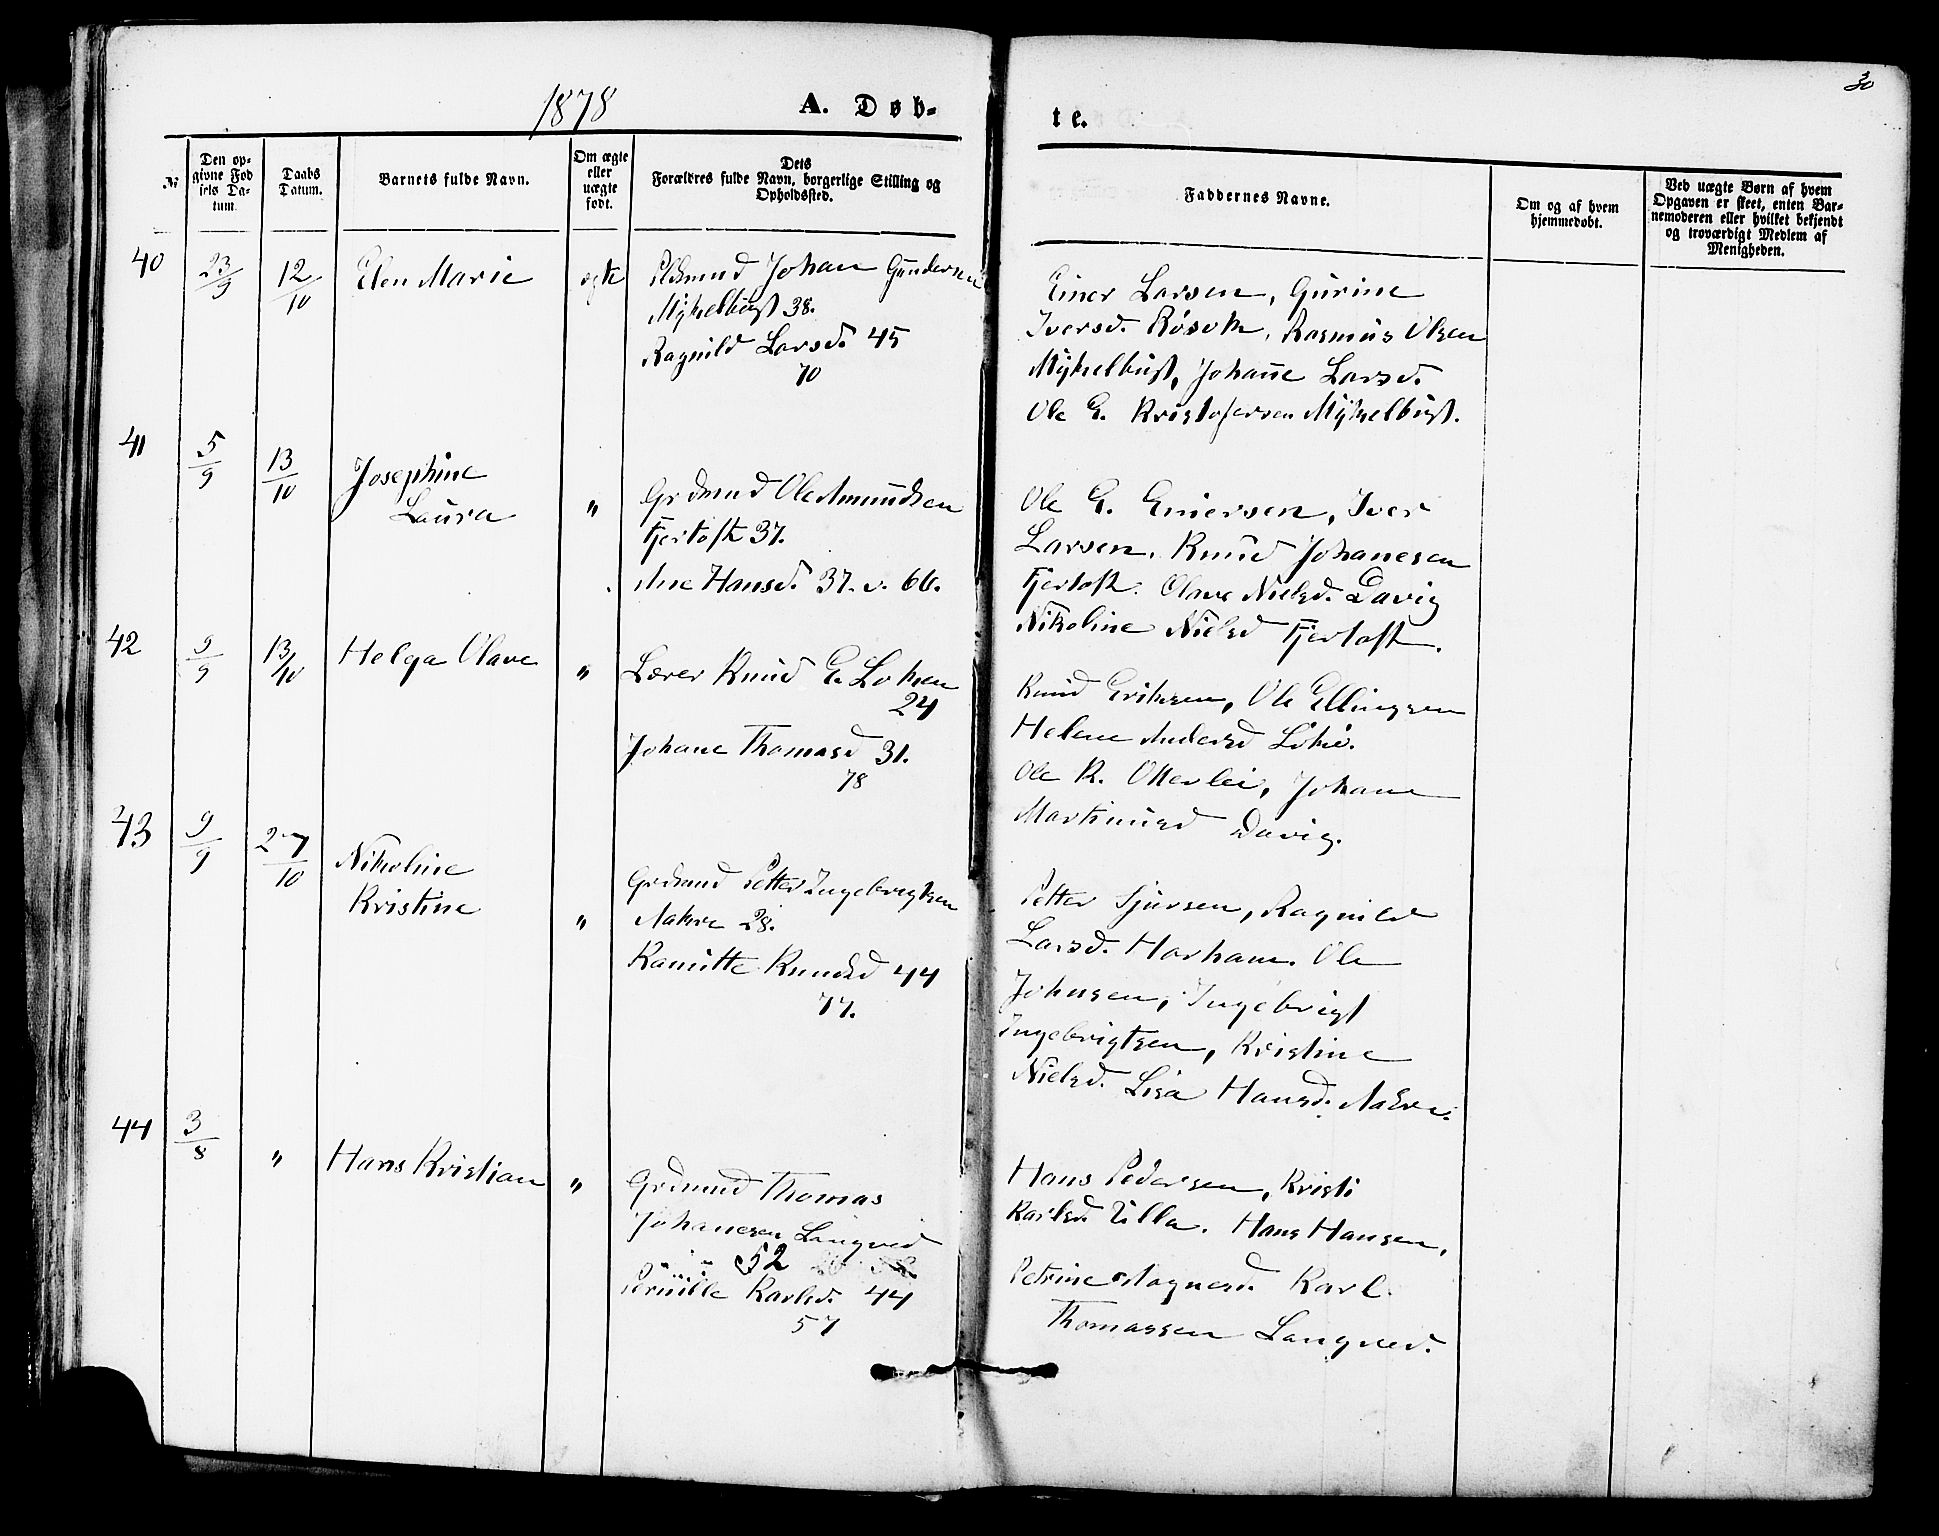 30
1878
A. Døb-
te.
№
Den op-
givne Fød
sels Da-
tum.
Daabs
Datum.
Barnets fulde Navn.
Om ægte
eller
uægte
født.
Dets
Forældres fulde Navn, borgerlige Stilling og
Opholdssted.
Faddernes Navne.
Om og af hvem
hjemmedøbt.
Ved uægte Børn af hvem
Opgaven er skeet, enten Bar-
nemoderen eller hvilket bekjendt
og troværdigt Medlem af
Menigheden.
40
23/9
12/10
Elen Marie
egte
Johan Gundersen
Myklebust 38.
Ragnild Larsd. 45
70
Einer Larsen, Gurine
Iversd. Røsok, Rasmus Olsen
Myklebust, Johane Larsd.
Ole E. Kristofersen Myklebust.
41
5/9
13/10
Josephine
Laura
"
Grdmnd Ole Amundsen
Fjertoft 37.
Ane Hansd. 37. v. 66.
Ole E. Einersen, Iver
Larsen, Knud Johanesen
Fjertoft. Olave Nielsd. Davig
Nikoline Nielsd Fjertoft.
42
9/9
13/10
Helga Olave
"
Lærer Knud E. Løken
24
Johane Thomasd 31.
78
Knud Eriksen, Ole Ellingsen
Helene Andersd Løke.
Ole K. Otterlei, Johane
Martinusd Davig.
43
9/9
27/10
Nikoline
Kristine
"
Grdmnd Petter Ingebrigtsen
Nakre 28.
Kanutte Knudsd 44
77.
Petter Sjursen, Ragnild
Larsd. Harham. Ole
Johnsen, Ingebrigt
Ingebrigtsen, Kristine
Nielsd. Lisa Hansd. Nakre.
44
3/8
"
Hans Kristian
"
Grdmnd Thomas
Johanesen Langved
52
Pernille Karlsd. 44
57
Hans Pedersen, Kristi
Karlsd Ulla. Hans Hansen,
Petrine Magnesd. Karl
Thomassen Langved.